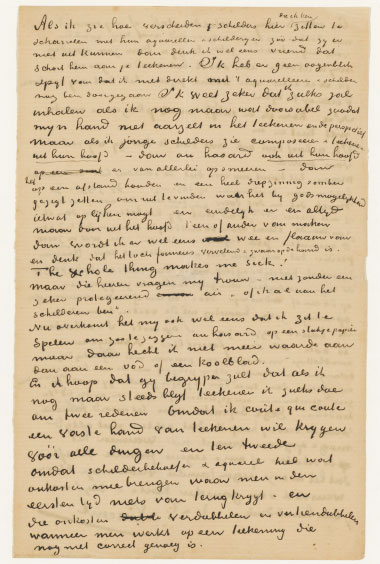 Als ik zie hoe verscheiden schilders hier zitten te
scharrelen met hun aquarellen & schilderijen zoo dat zij er
niet uit kunnen dan denk ik wel eens vriend dat
schort hem aan je teekenen. Ik heb er geen oogenblik
spijt van dat ik niet direkt met 't aquarelleeren & schilderen
ben doorgegaan. Ik weet zeker dat ik zulks zal
inhalen als ik nog maar wat zoodat
mijn hand niet aarzelt in het teekenen en de
maar als ik jonge schilders zie componeeren & teekenen
uit hun hoofd – dan au hasard ook uit hun hoofd
er van allerlei op smeeren – dan
het op een afstand houden en een heel diepzinnig somber
gezigt zetten om uit te vinden waar het bij godsmogelijkheid
ietwat op lijken mogt en eindelijk er en altijd
maar door uit het hoofd 't een of ander van maken
dan wordt ik er wel eens wee en flaauw van
en denk dat het toch vervelend & zwaar op de hand is.
The whole thing makes me sick!
maar die heeren vragen mij niet zonder een
zeker protegeerend air – "of ik al aan het
schilderen ben".
Nu overkomt het mij ook wel eens dat ik zit te
spelen om zoo te zeggen au hasard op een stukje papier
maar daar hecht ik niet meer waarde aan
dan aan een vod of een koolblad.
En ik hoop dat gij begrijpen zult dat als ik
nog maar steeds blijf teekenen ik zulks doe
om twee redenen omdat ik coute que coute
een vaste hand van teekenen wil krijgen
vóór alle dingen en ten tweede
omdat & aquarel heel wat
onkosten meebrengen waar men in den
eersten tijd niets van terug krijgt. en
die onkosten verdubbelen en vertiendubbelen
wanneer men werkt op een teekening die
nog niet correct genoeg is.